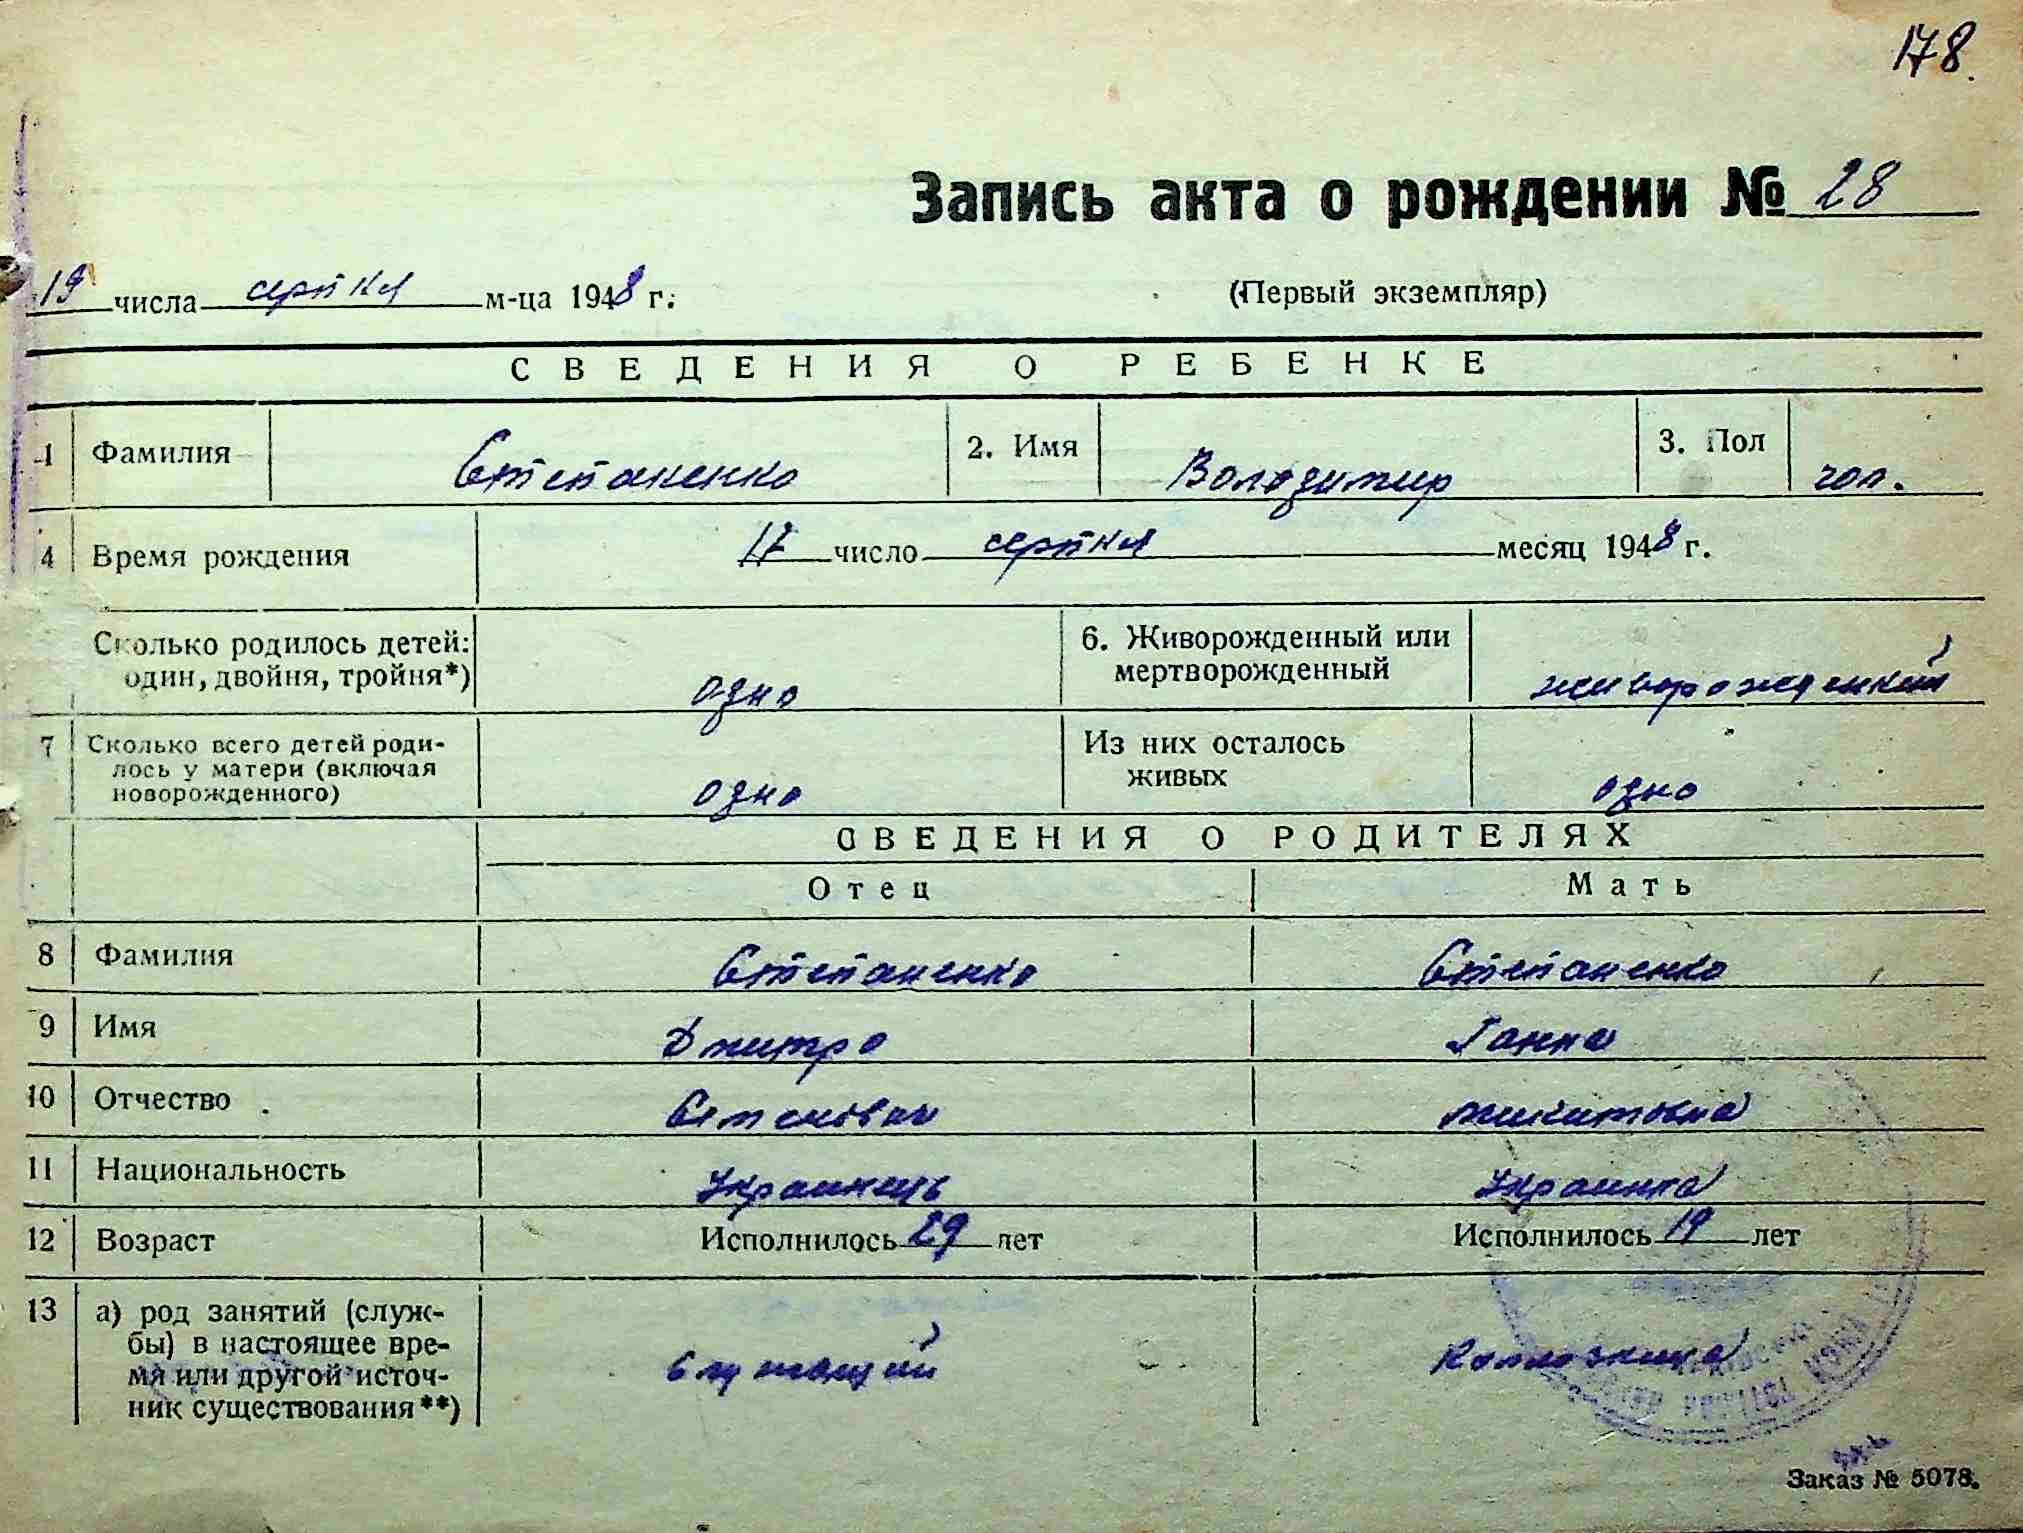 178.
Запись акта о рождении № 28
19 числа серпня м-ца 1948 г.
(Первый экземпляр)
СВЕДЕНИЯ О РЕБЕНКЕ
1 Фамилия Степаненко 2. Имя Володимир 3. Пол чол.
4 Время рождения 17 число серпня месяц 1948 г.
Сколько родилось детей: один, двойня, тройня*) одно 6. Живорожденный или мертворожденный живорожденный
7 Сколько всего детей родилось у матери (включая новорожденного) одно Из них осталось живых одно
СВЕДЕНИЯ О РОДИТЕЛЯХ
Отец Мать
8 Фамилия Степаненко Степаненко
9 Имя Дмитро Ганна
10 Отчество Семенович Микитовна
11 Национальность Украинець Украинка
12 Возраст Исполнилось 29 лет Исполнилось 19 лет
13 а) род занятий (служ-
бы) в настоящее вре-
мя или другой источ-
ник существования**) Служащий Колхозница
Заказ № 5078.